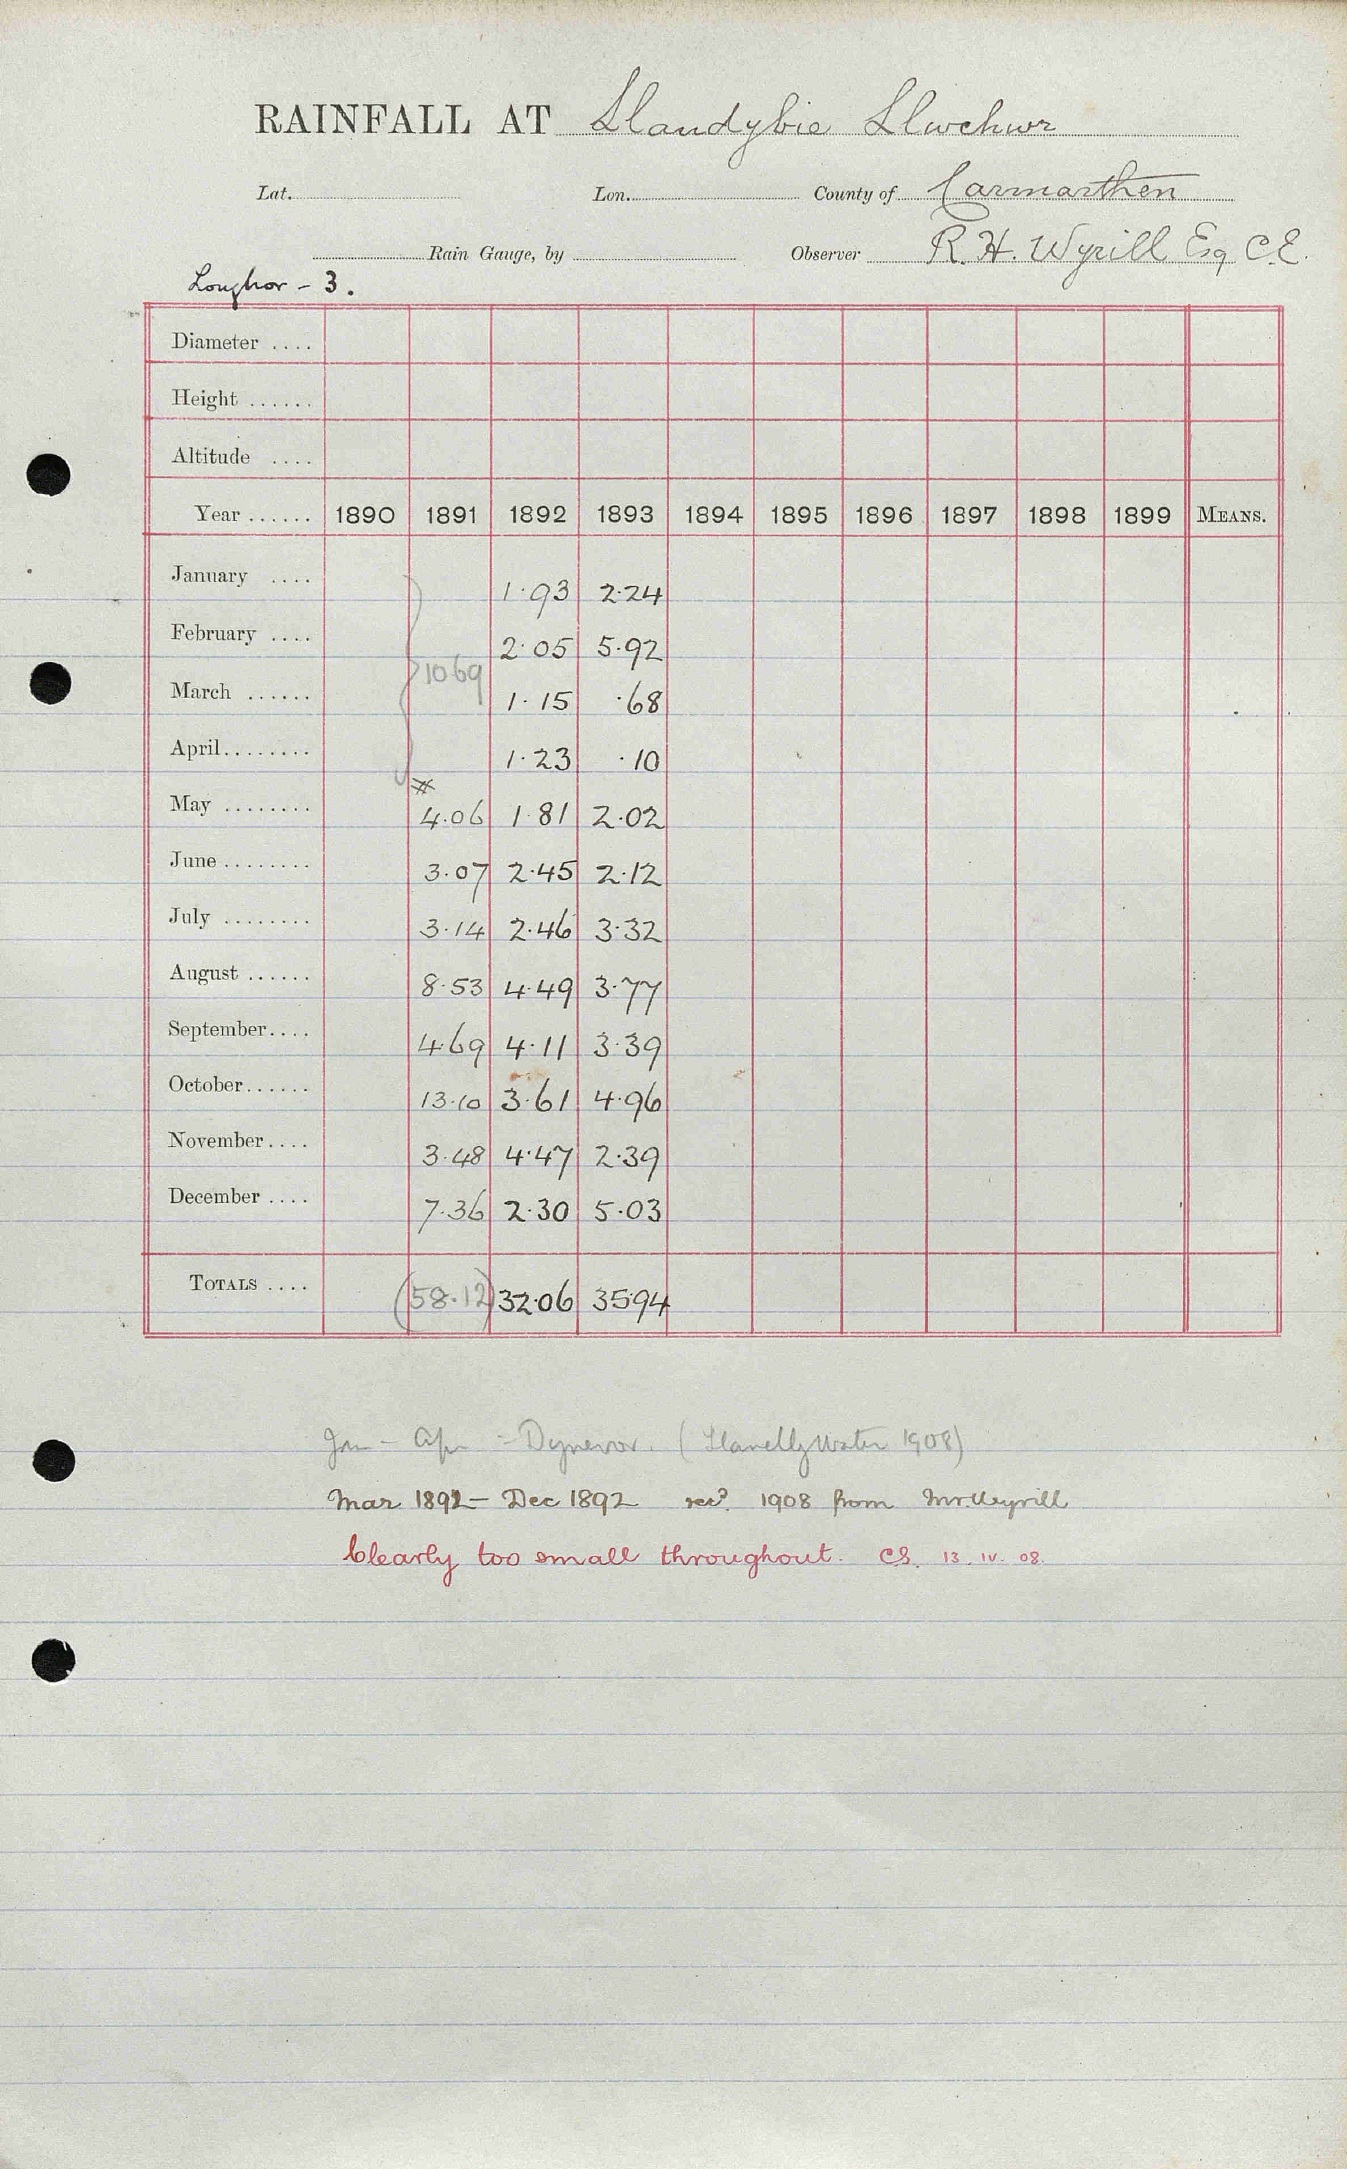 RAINFALL AT Llandybie Llwchwr
Lat. Lon. County of Carmarthen
Rain Gauge, by Observer R. H. Wyrill Esq C.E.
Loughor - 3.
Diameter ....
Height ......
Altitude ....
Year ...... 1890 1891 1892 1893 1894 1895 1896 1897 1898 1899 MEANS.
January .... 1.93 2.24
February .... 2.05 5.92
1069
March ...... 1.15 .68
April........ 1.23 .10
May ........ 4.06 1.81 2.02
June ........ 3.07 2.45 2.12
July ........ 3.14 2.46 3.32
August ...... 8.53 4.49 3.77
September.... 4.69 4.11 3.39
October...... 13.10 3.61 4.96
November.... 3.48 4.47 2.39
December .... 7.36 2.30 5.03
TOTALS .... (58.12) 32.06 35.94
Jan - Apr - Dynevor. (Llanelly Water 1908)
Mar 1892 - Dec 1892 recd. 1908 from Mr. Wyrill
Clearly too small throughout. CS. 13. IV. 08.